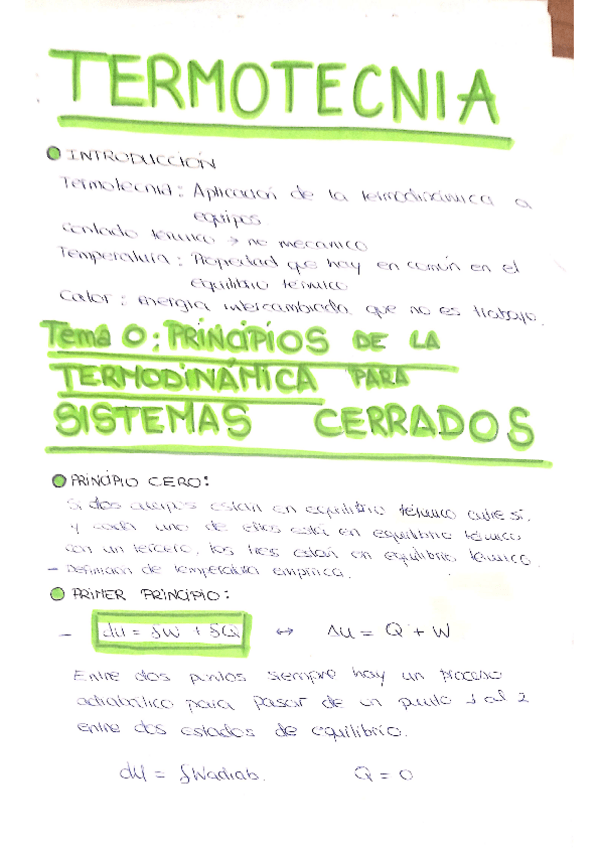 TERMOTECNIA
INTRODUCCIÓN
Termotecnia: Aplicación de la termodinámica a
equipos.
Contacto térmico → no mecánico
Temperatura: Propiedad que hay en común en el
equilibrio térmico
Calor: energía intercambiada que no es trabajo.
Tema 0: PRINCIPIOS DE LA
TERMODINÁMICA PARA
SISTEMAS CERRADOS
PRINCIPIO CERO:
Si dos cuerpos están en equilibrio térmico entre sí,
y cada uno de ellos está en equilibrio térmico
con un tercero, los tres están en equilibrio térmico.
- Definición de temperatura empírica.
PRIMER PRINCIPIO:
- dU = δW + δQ ↔ ΔU = Q + W
Entre dos puntos siempre hay un proceso
adiabático para pasar de un punto 1 al 2
entre dos estados de equilibrio.
dU = δWadiab. Q = 0